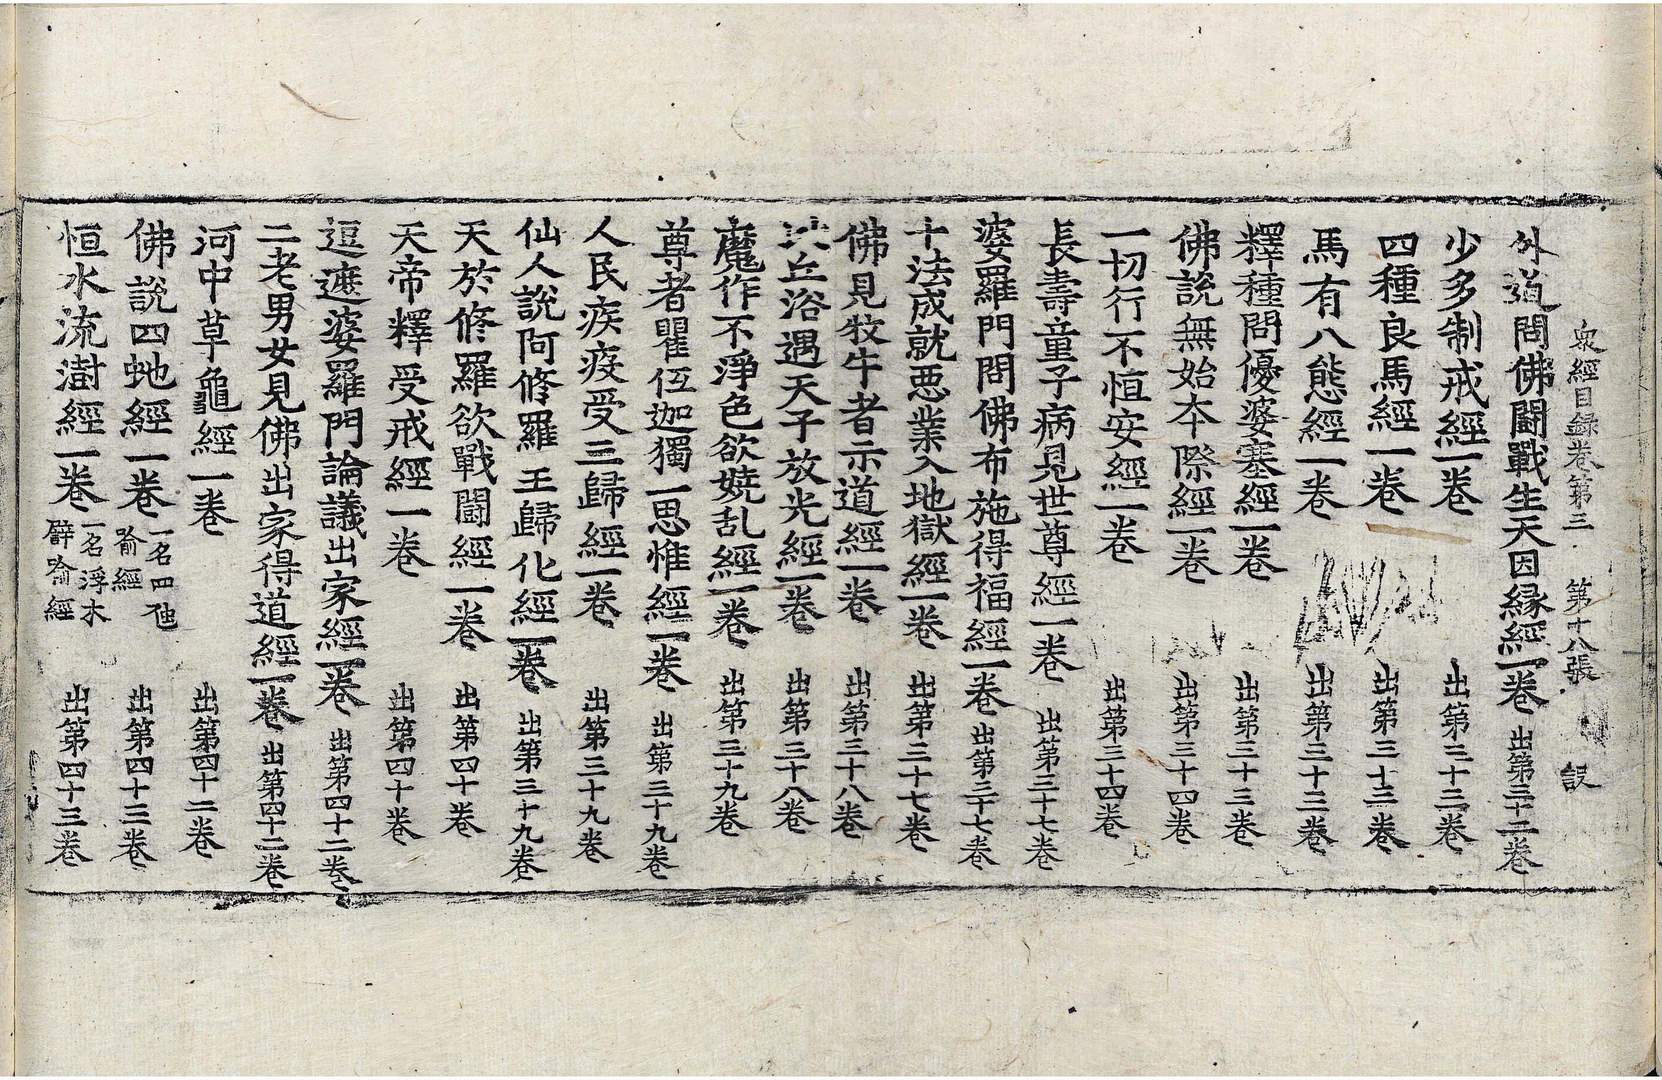 衆經目録卷第三 第十八張
外道問佛鬪戰生天因縁經一卷 出第三十二卷
少多制戒經一卷 出第三十三卷
四種良馬經一卷 出第三十三卷
馬有八態經一卷 出第三十三卷
釋種問優婆塞經一卷 出第三十三卷
佛說無始本際經一卷 出第三十四卷
一切行不恒安經一卷 出第三十四卷
長壽童子病見世尊經一卷 出第三十七卷
婆羅門問佛布施得福經一卷 出第三十七卷
十法成就惡業入地獄經一卷 出第三十七卷
佛見牧牛者示道經一卷 出第三十八卷
比丘浴遇天子放光經一卷 出第三十八卷
魔作不淨色欲嬈乱經一卷 出第三十九卷
尊者瞿伍迦獨一思惟經一卷 出第三十九卷
人民疾疫受三歸經一卷 出第三十九卷
仙人說阿修羅王歸化經一卷 出第三十九卷
天於修羅欲戰鬪經一卷 出第四十卷
天帝釋受戒經一卷 出第四十卷
逗遮婆羅門論議出家經一卷 出第四十二卷
二老男女見佛出家得道經一卷 出第四十二卷
河中草龜經一卷 出第四十二卷
佛說四虵經一卷 一名四虵喻經 出第四十三卷
恒水流澍經一卷 一名浮木辟喻經 出第四十三卷